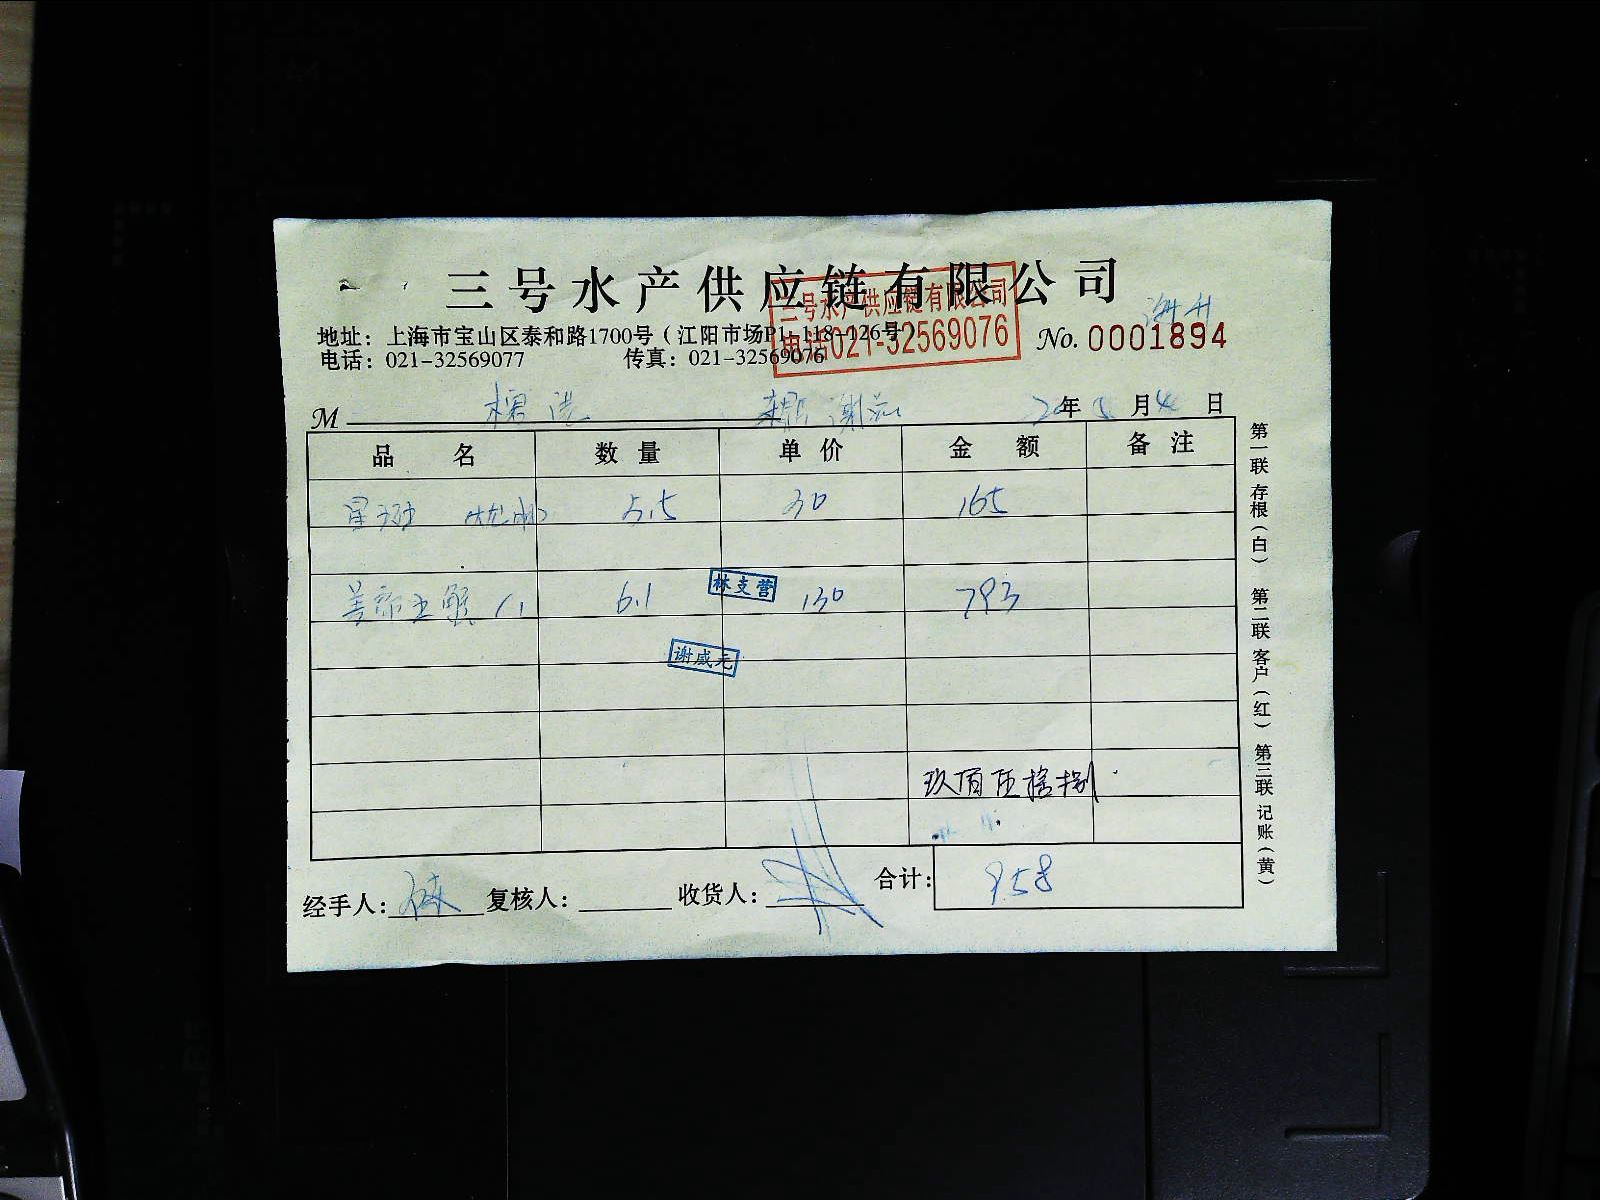 三号水产供应链有限公司
三号水产供应链有限公司
电话021-32569076
地址：上海市宝山区泰和路1700号（江阳市场P1-118-126号）
No. 0001894
电话：021-32569077 传真：021-32569076
M 年 月 日
品名 数量 单价 金额 备注
5.5 30 165
6.1 130 793
林支营
谢威元
玖佰伍拾捌
合计： 958
经手人： 复核人： 收货人：
第一联 存根（白） 第二联 客户（红） 第三联 记账（黄）